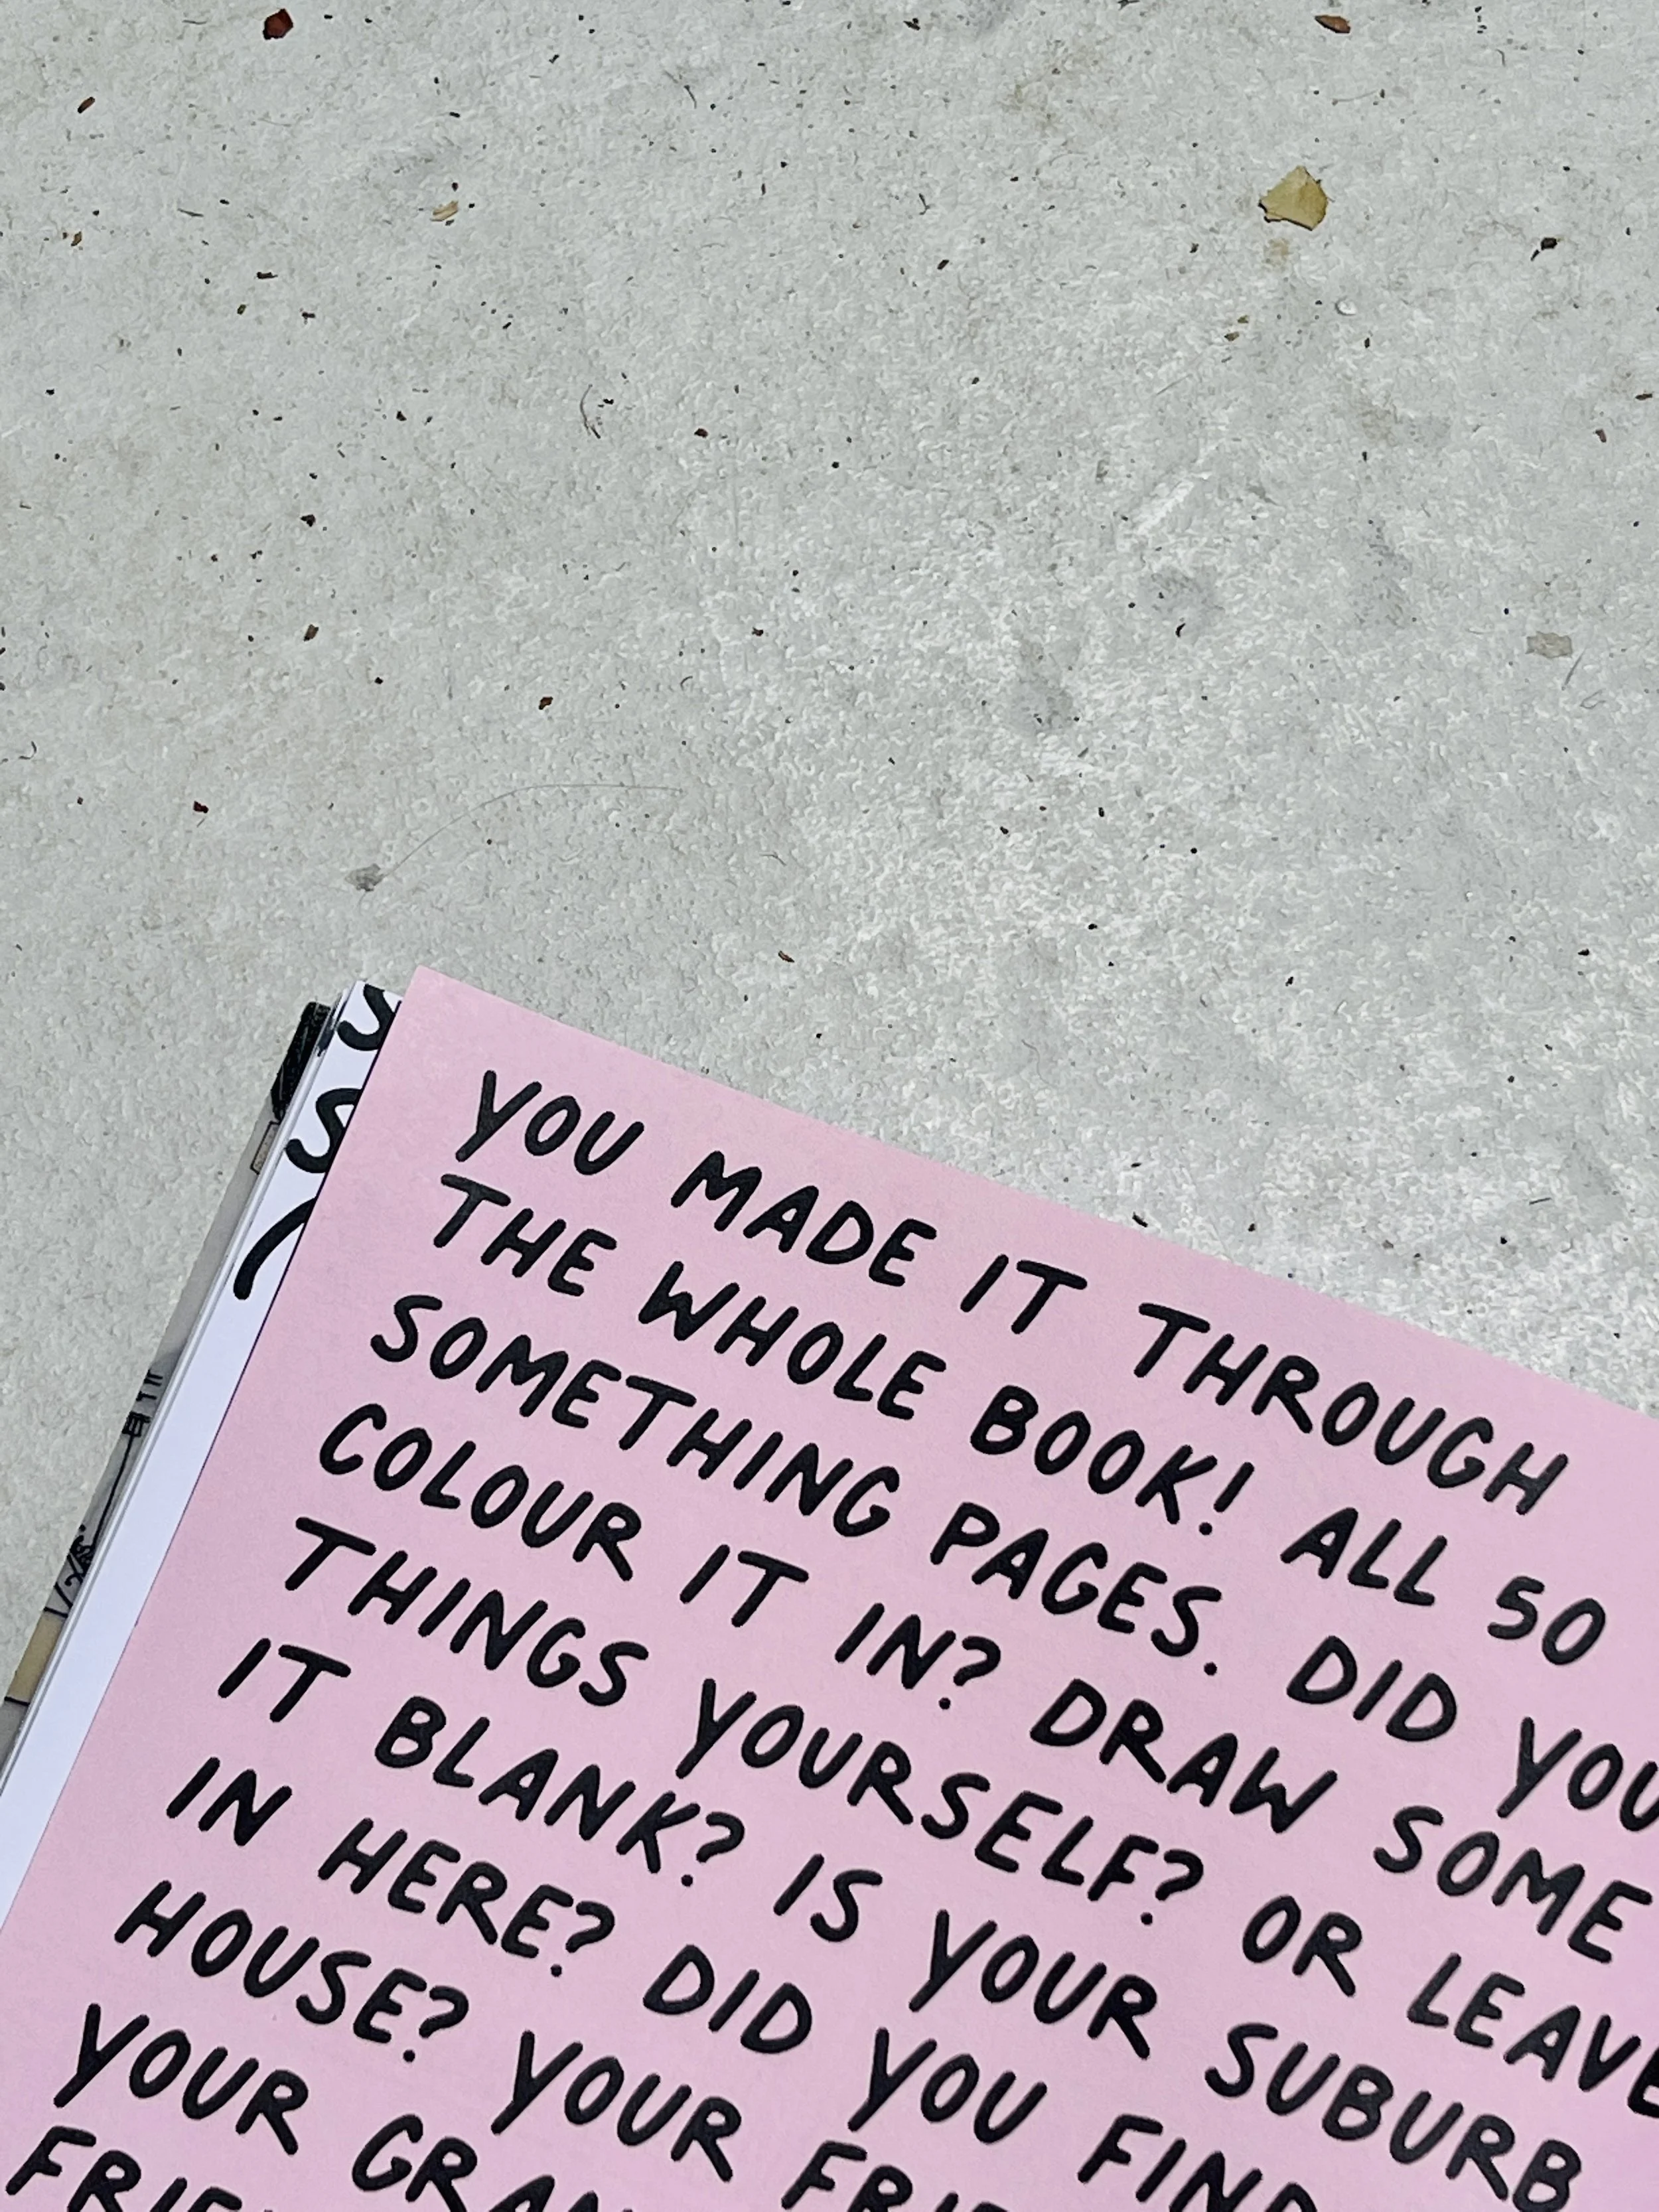 YOU MADE IT THROUGH
THE WHOLE BOOK! ALL 50
SOMETHING PAGES. DID YOU
COLOUR IT IN? DRAW SOME
THINGS YOURSELF? OR LEAVE
IT BLANK? IS YOUR SUBURB
IN HERE? DID YOU FIND
HOUSE? YOUR
YOUR